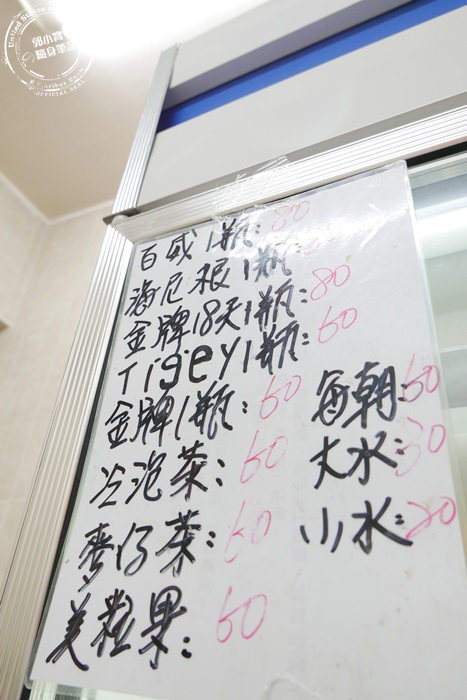 郭小寶
隨身筆記
百威1瓶:80
海尼根1瓶:
金牌18天1瓶:80
Tigey1瓶:60
金牌1瓶:60
冷泡茶:60
麥仔茶:60
美粒果:60
每朝:60
大水:30
小水:20